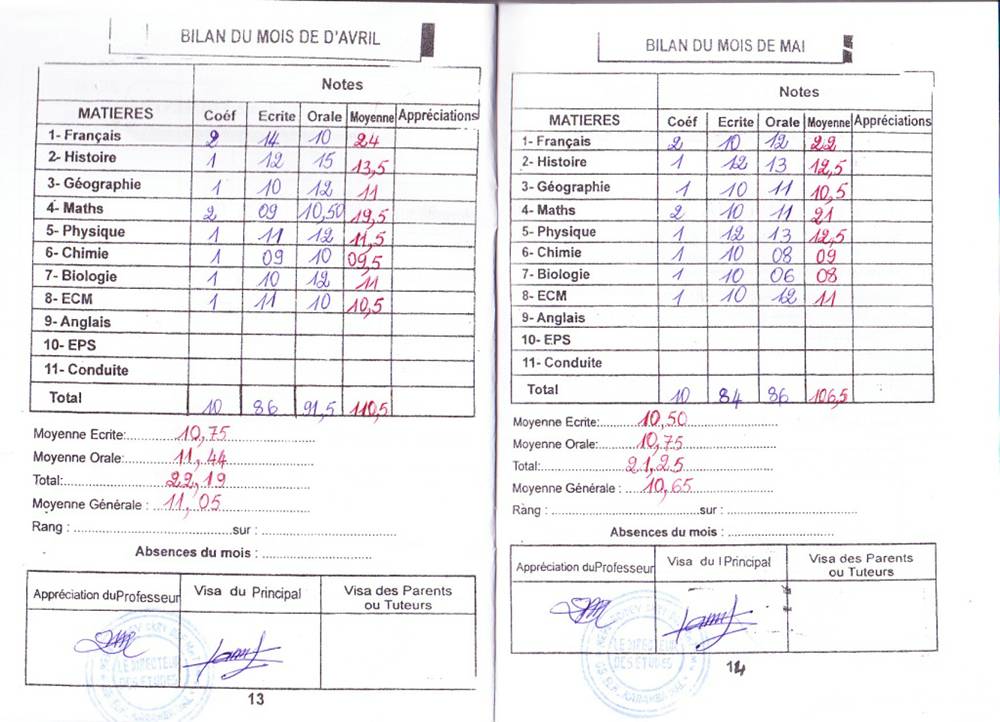 BILAN DU MOIS DE D'AVRIL
Notes
MATIERES Coéf Ecrite Orale Moyenne Appréciations
1- Français 2 14 10 24
2- Histoire 1 12 15 13,5
3- Géographie 1 10 12 11
4- Maths 2 09 10,50 19,5
5- Physique 1 11 12 11,5
6- Chimie 1 09 10 09,5
7- Biologie 1 10 12 11
8- ECM 1 11 10 10,5
9- Anglais
10- EPS
11- Conduite
Total 10 86 91,5 110,5
Moyenne Ecrite:..........10,75....................
Moyenne Orale:..........11,44....................
Total:..........22,19....................
Moyenne Générale : ..11,05....................
Rang : ........................................sur : ...........................
Absences du mois : ...........................
Appréciation du Professeur Visa du Principal Visa des Parents
ou Tuteurs
LE DIRECTEUR
DES ETUDES
13
BILAN DU MOIS DE MAI
Notes
MATIERES Coéf Ecrite Orale Moyenne Appréciations
1- Français 2 10 12 22
2- Histoire 1 12 13 12,5
3- Géographie 1 10 11 10,5
4- Maths 2 10 11 21
5- Physique 1 12 13 12,5
6- Chimie 1 10 08 09
7- Biologie 1 10 06 08
8- ECM 1 10 12 11
9- Anglais
10- EPS
11- Conduite
Total 10 84 86 106,5
Moyenne Ecrite:..........10,50....................
Moyenne Orale:..........10,75....................
Total:..........21,25....................
Moyenne Générale : ....10,65....................
Rang : ........................................sur : ...........................
Absences du mois : ...........................
Appréciation du Professeur Visa du l Principal Visa des Parents
ou Tuteurs
LE DIRECTEUR
DES ETUDES
14